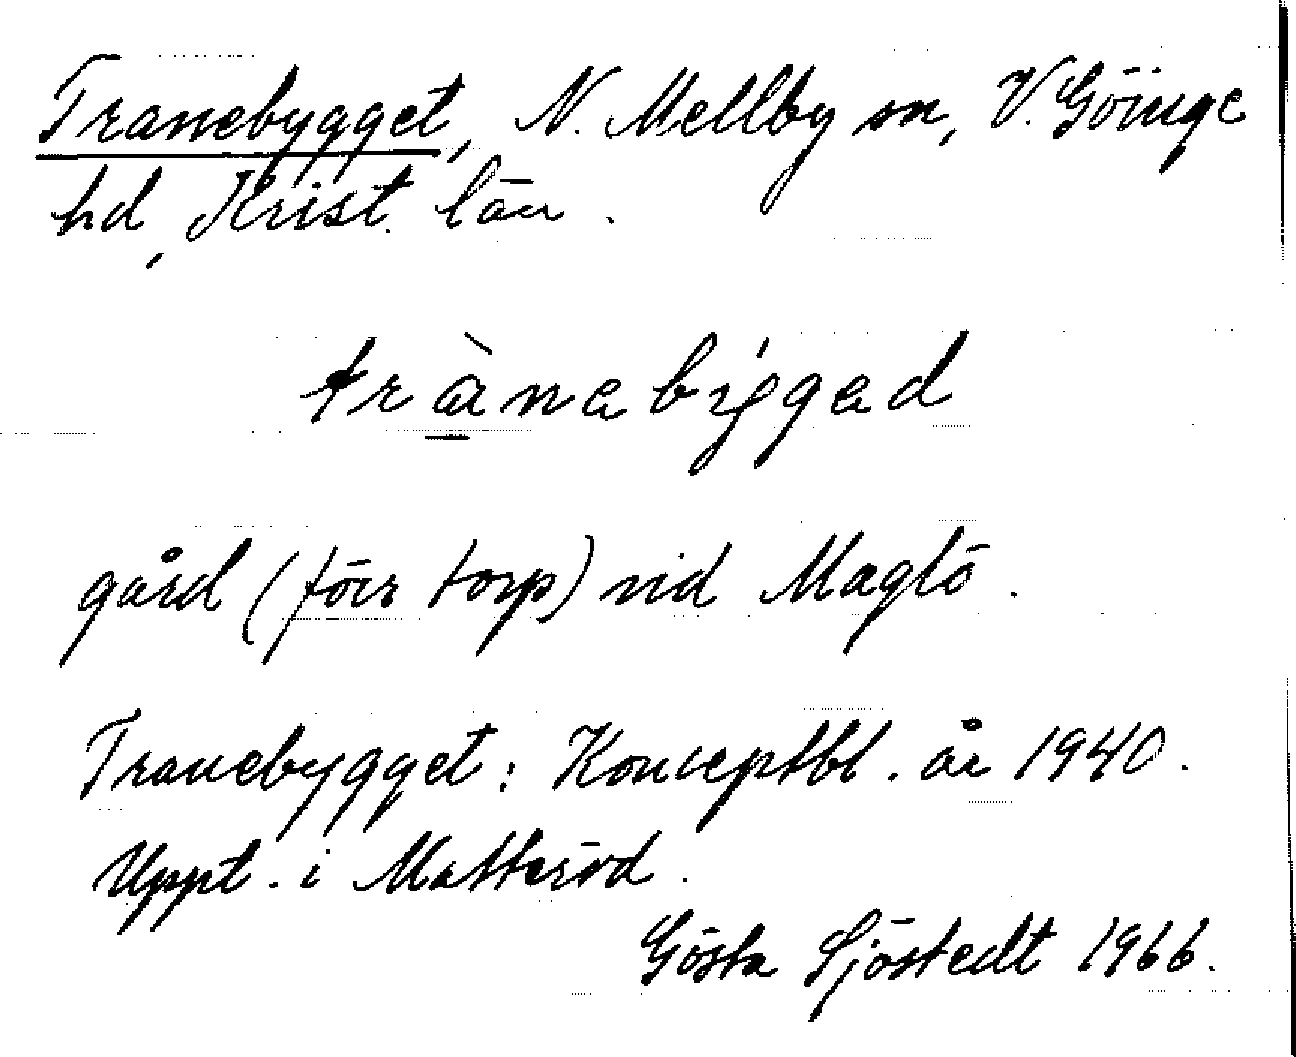 Tranebygget, N. Mellby sn, V. Göinge
hd, Krist. län.
trànabýgad
gård (förr torp) vid Maglö.
Tranebygget: Konceptbl. år 1940.
Uppt. i Matteröd.
Gösta Sjöstedt 1966.